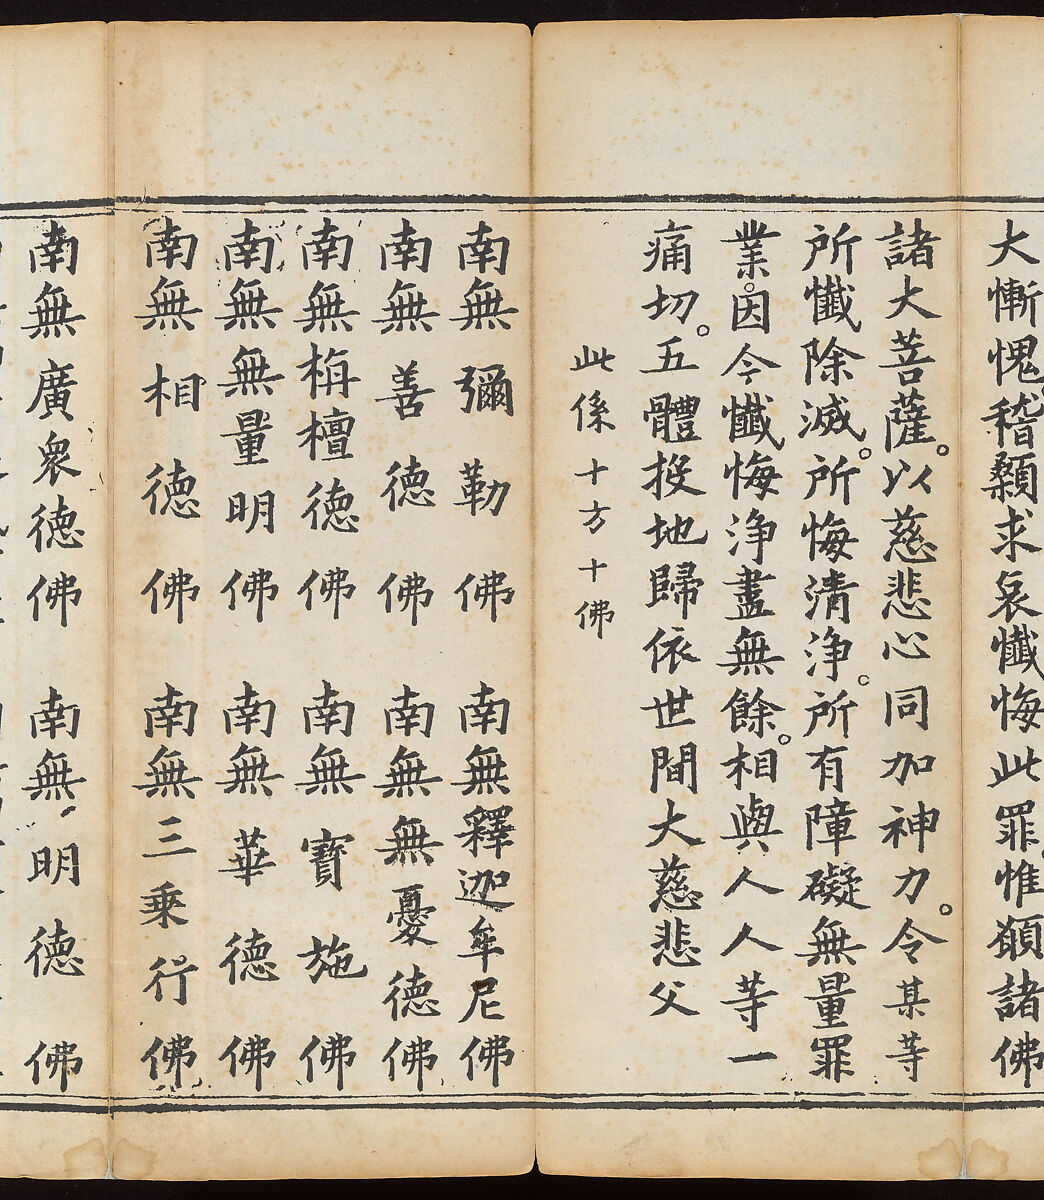 大慚愧。稽顙求哀懺悔此罪。惟願諸佛
諸大菩薩。以慈悲心同加神力。令某等
所懺除滅。所悔清淨。所有障礙無量罪
業。因今懺悔淨盡無餘。相與人人等一
痛切。五體投地歸依世間大慈悲父
此係十方十佛
南無彌勒佛 南無釋迦牟尼佛
南無善德佛 南無無憂德佛
南無栴檀德佛 南無寶施佛
南無無量明佛 南無華德佛
南無相德佛 南無三乘行佛
南無廣衆德佛 南無明德佛